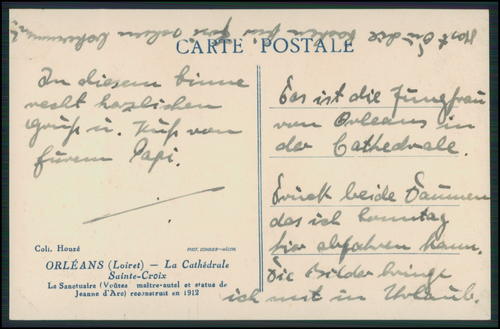 CARTE POSTALE
In diesem Sinne
recht herzlichen
Gruß u. Kuß von
Eurem Papi.
Das ist die Jungfrau
von Orleans in
der Cathedrale.
Drück beide Daumen
das ich Sonntag
hier abfahren kann.
Die Bilder bringe
ich mit in Urlaub.
Coll. Houzé
ORLÉANS (Loiret) — La Cathédrale
Sainte-Croix
Le Sanctuaire (Voûtes maître-autel et statue de
Jeanne d'Arc) reconstruit en 1912